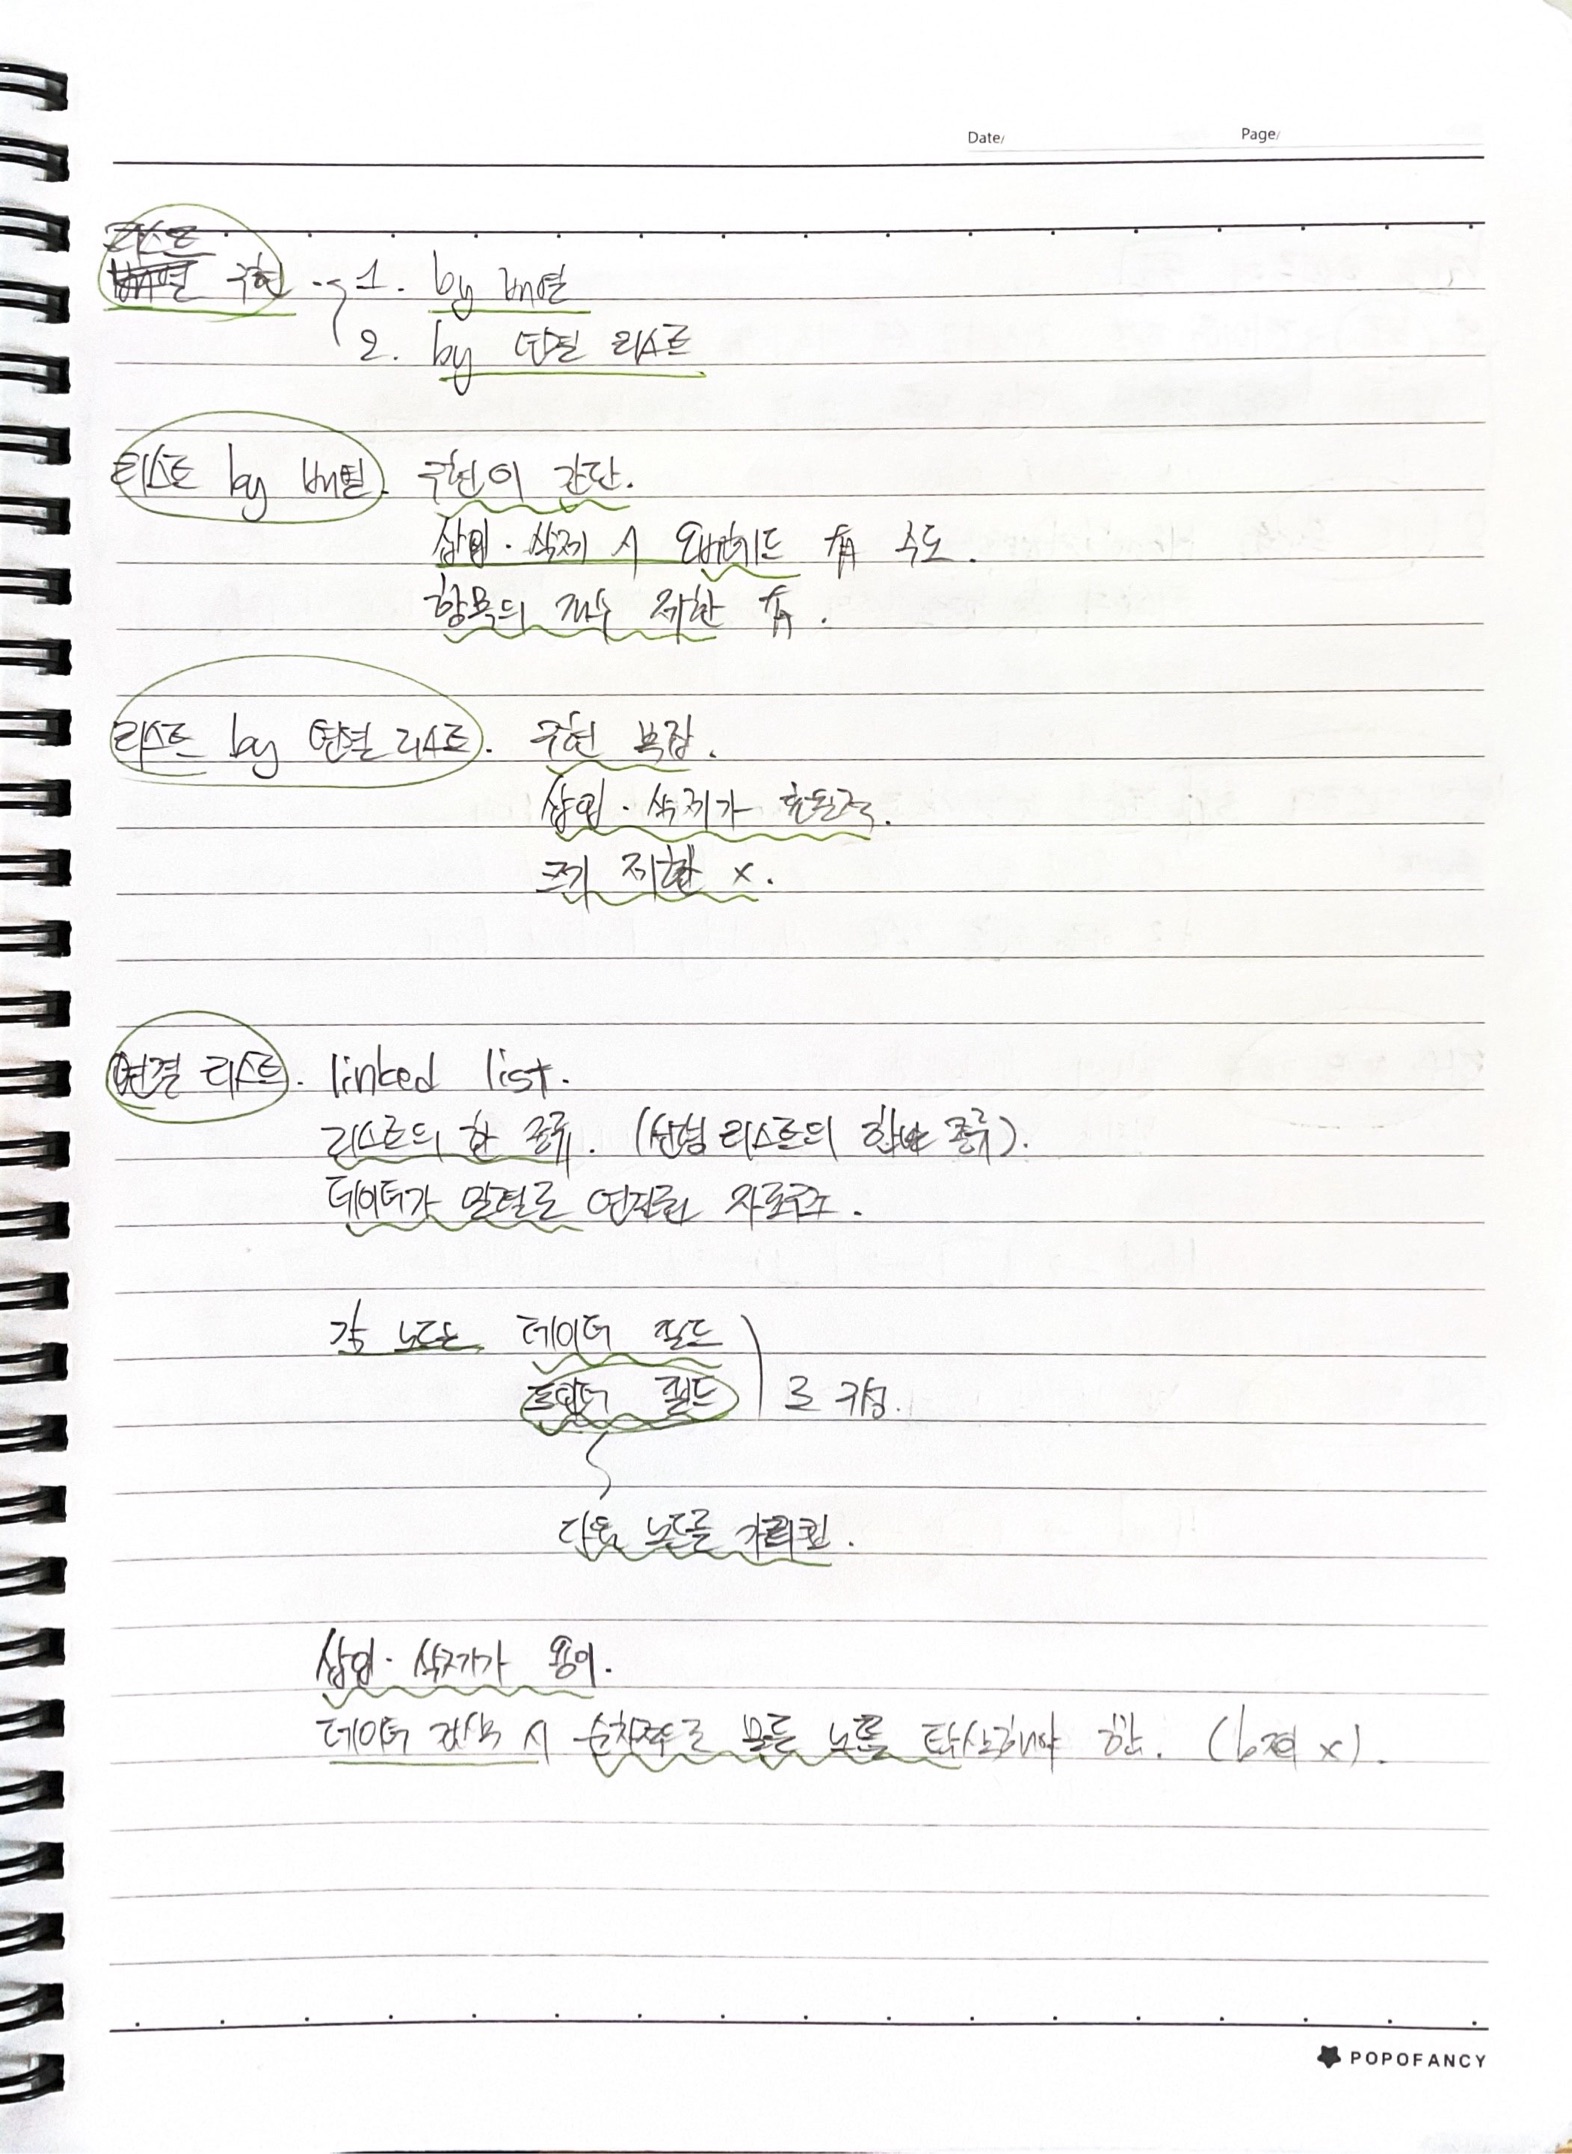 Date/ Page/
리스트
배열 구현 1. by 배열
2. by 연결 리스트
리스트 by 배열. 구현이 간단.
삽입·삭제 시 오버헤드 有 수도.
항목의 개수 제한 有.
리스트 by 연결 리스트. 구현 복잡.
삽입·삭제가 효율적.
크기 제한 x.
연결 리스트. linked list.
리스트의 한 종류. (선형 리스트의 한 종류).
데이터가 일렬로 연결된 자료구조.
각 노드는 데이터 필드
포인터 필드 로 구성.
다음 노드를 가리킴.
삽입·삭제가 용이.
데이터 검색 시 순차적으로 모든 노드를 탐색해야 함. ( x).
POPOFANCY